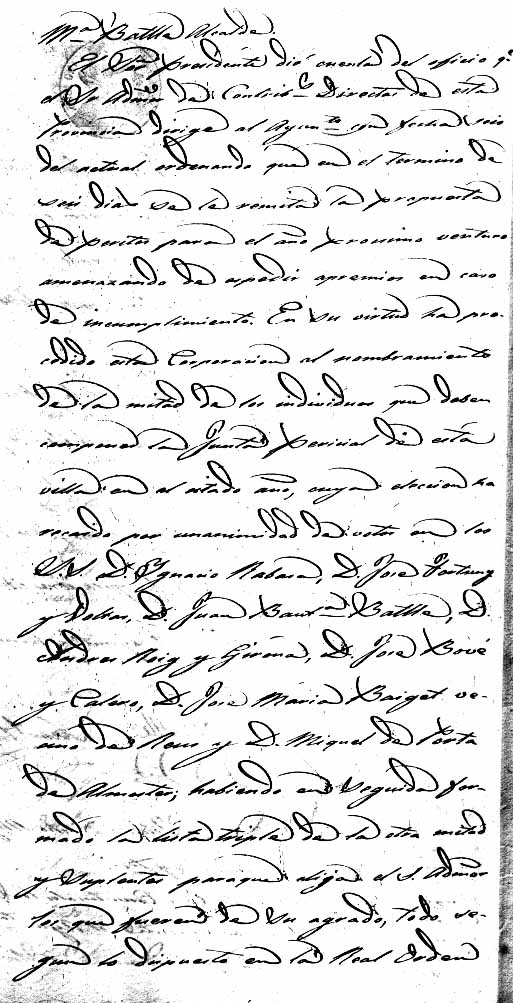 Mª Batlle Alcalde.
El Sor. presidente dió cuenta del oficio qe.
el Sr Admor de Contribs Directas de esta
Provincia dirige al Ayunto con fecha seis
del actual ordenando que en el termino de
seis dias se le remita la propuesta
de peritos para el año procsimo venturo
amenazando de espedir apremios en caso
de incumplimiento. En su virtud ha pro-
cedido esta Corporacion al nombramiento
de la mitad de los individuos que deben
componer la Junta pericial de esta
villa en el citado año, cuya eleccion ha
recaido por unanimidad de votos en los
SS. D. Ygnacio Rabasa, D. Jose Fortuny
y D. Juan Bauta Batlle, D.
Andres Roig y Girona, D. Jose Bové
y D. Jose Maria Baiget ve-
cino de Reus y D. Miquel de Porta
de habiendo en seguida for-
mado la lista triple de la otra mitad
y suplentes paraque elija el S. Admor
los que fueren de su agrado, todo se-
gun lo dispuesto en la Real Orden